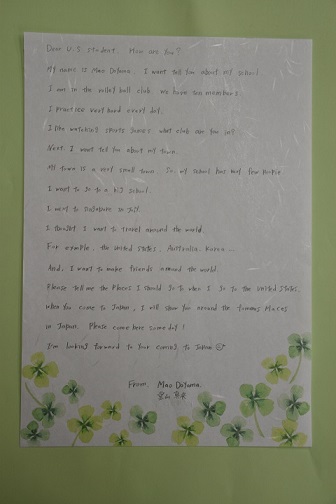 Dear U.S student. How are you?
My name is Mao Doyama. I want tell you about my school.
I am in the volley ball club. We have ten members.
I practice very hard every day.
I like watching sports games what club are you in?
Next. I want tell you about my town.
My town is a very small town. So, my school has very few people
I want to go to a big school.
I went to
I thought I want to travel around the world.
For example, the United States, Australia, Korea ...
And, I want to make friends around the world.
Please tell me the places I should go to when I go to the United States.
When you come to Japan, I will show you around the famous places
in Japan. Please come here some day!
I'm looking forward to your coming to Japan ☺
From, Mao Doyama.